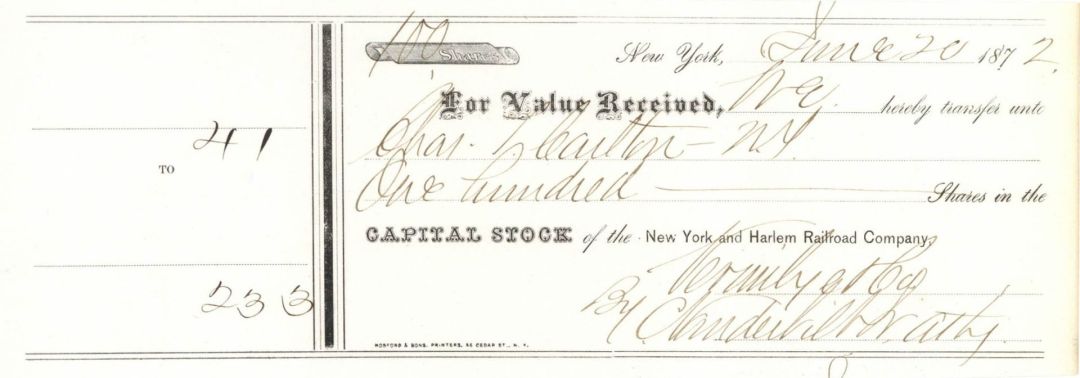 41
TO
233
100 Shares
New York, June 20 1872.
For Value Received, We hereby transfer unto
Chas. Carlton - N.Y.
One hundred Shares in the
CAPITAL STOCK of the New York and Harlem Railroad Company
Vermilye & Co
By C Vanderbilt Jr atty.
HOSFORD & SONS, PRINTERS, 56 CEDAR ST., N. Y.